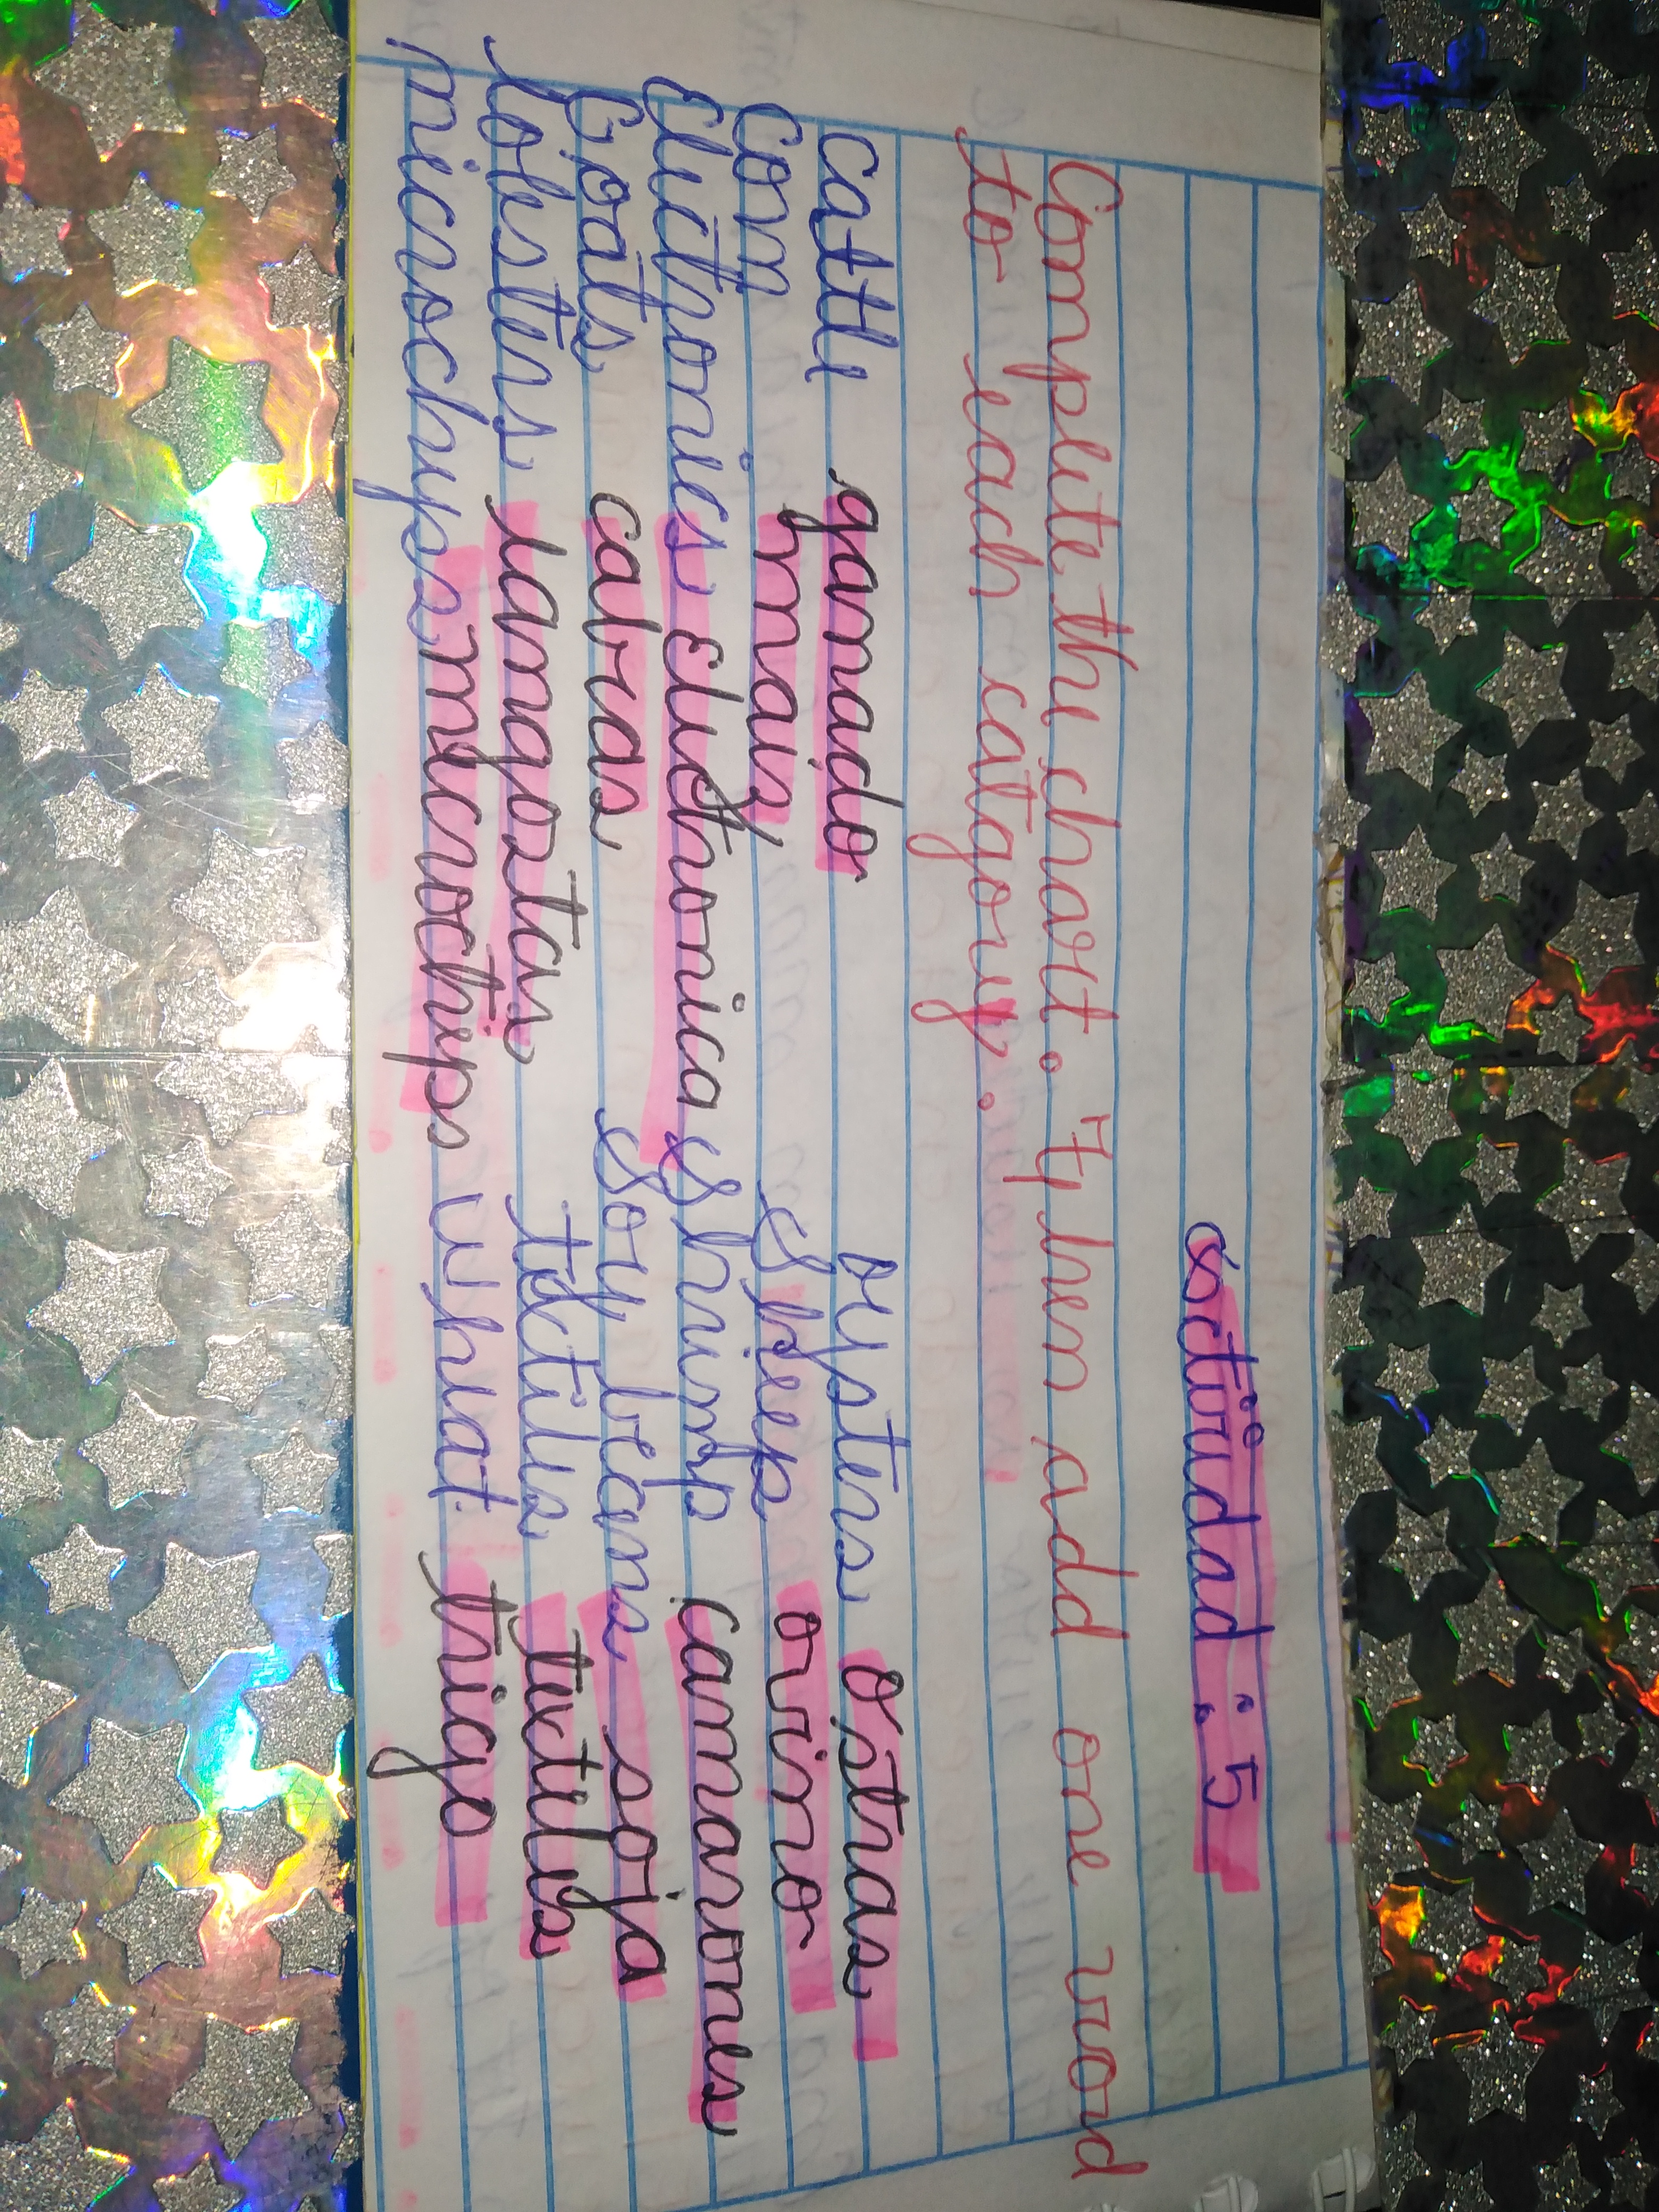 actividad: 5
Complete the chart. Then add one word
to each category.
cattle ganado oysters Ostras
Corn maiz Sheep ovino
Electronics electronica Shrimp camarones
Goats cabras Soy beans soja
lobsters langostas textiles textiles
microchyps microchips whaat trigo